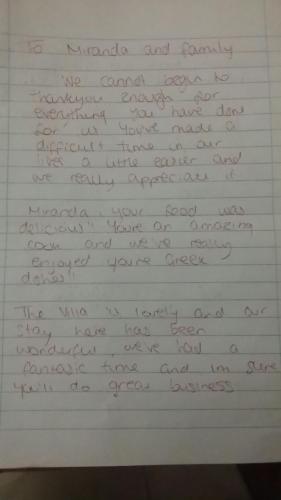 To Miranda and family
We cannot begin to
thankyou enough for
everything you have done
for us you've made a
difficult time in our
lifes a little easier and
we really appreciate it
Miranda, your food was
delicious!! You're an amazing
cook and we've really
enjoyed you're Greek
dishes!!
The Villa is lovely and our
stay here has been
wonderful, we've had a
fantasic time and im sure
you'll do great business